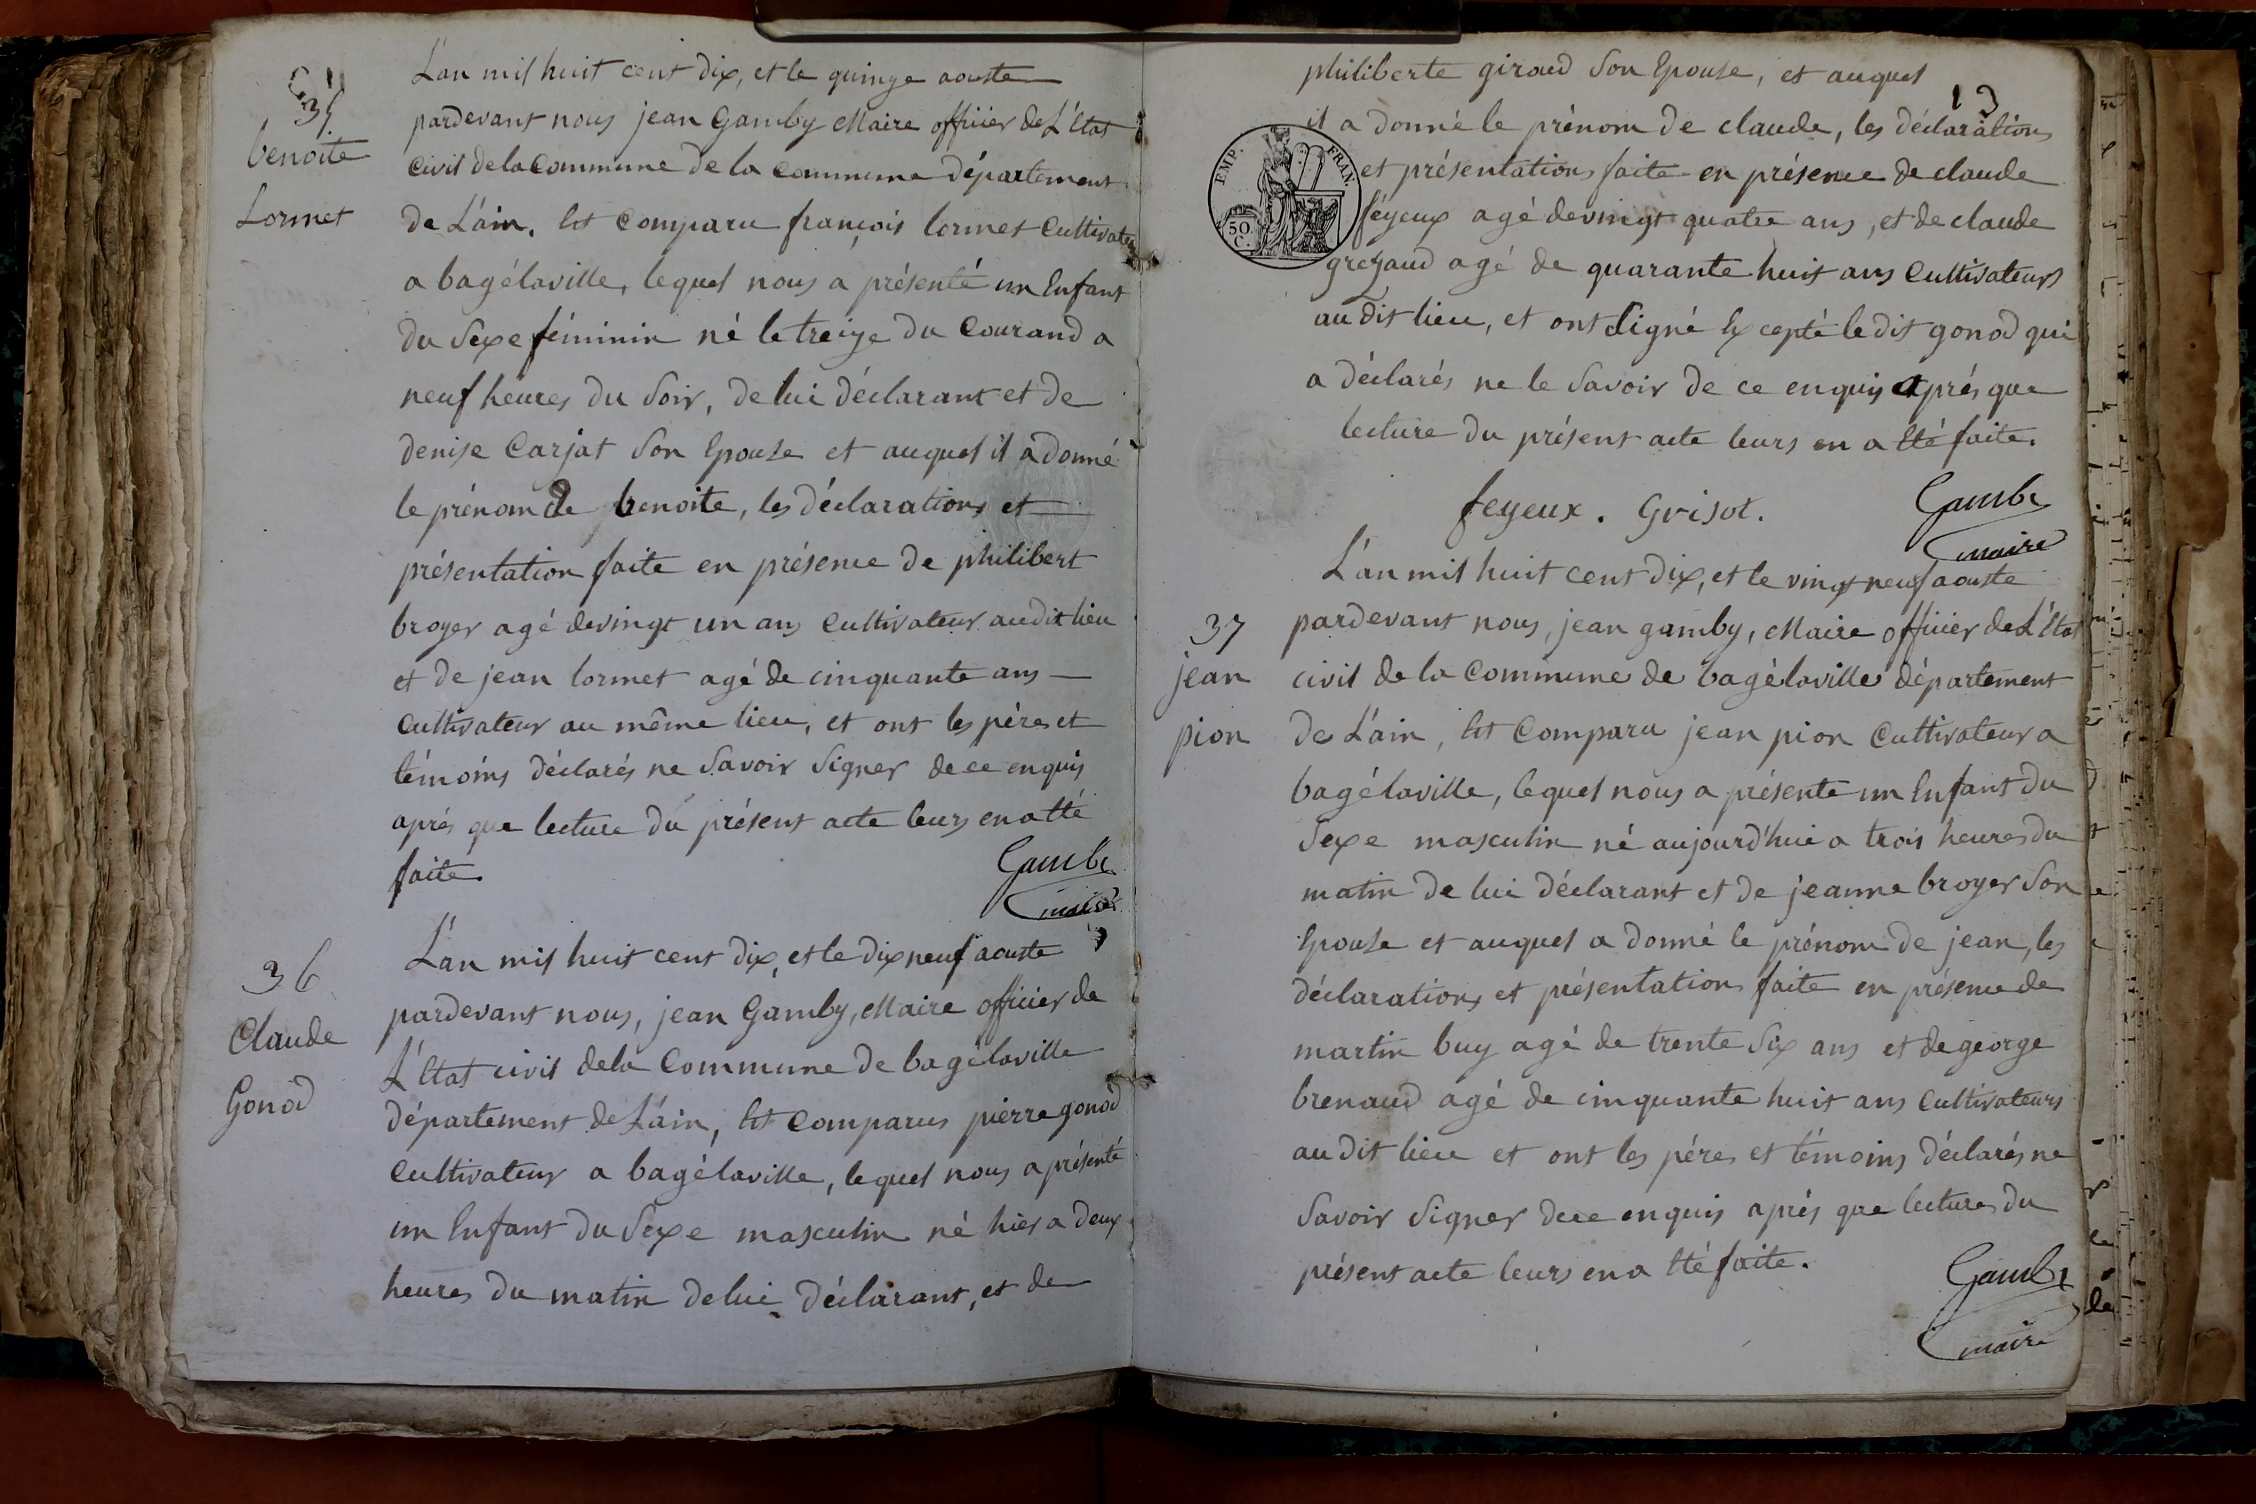 35
benoite
Lormet
L'an mil huit cent dix, et le quinze aouste
pardevant nous jean Gamby Maire officier de L'Etat
civil de la Commune de la commune département
de L'ain, Est comparu françois lormet Cultivateur
a bagélaville, lequel nous a présenté un Enfant
du Sexe féminin né le treize du Courand a
neuf heures du Soir, de lui déclarant et de
denise Carjat Son Epouse et auquel il a donné
le prénom de benoite, les déclarations et
présentation faite en présence de philibert
broyer agé de vingt un ans Cultivateur audit lieu
et de jean lormet agé de cinquante ans
Cultivateur au même lieu, et ont les pére et
témoins déclarés ne Savoir Signer de ce enquis
aprés que lecture du présent acte leurs en a Eté
faite.
Gamby
maire
36
Claude
Gonod
L'an mil huit cent dix, et le dix neuf aouste
pardevant nous, jean Gamby, Maire officier de
L'Etat civil dela Commune de bagélaville
département de L'ain, Est Comparus pierre gonod
Cultivateur a bagélaville, lequel nous a présenté
un Enfant du Sexe masculin né hier a deux
heures du matin de lui déclarant, et de
philiberte giroud Son Epouse, et auquel
13
il a donné le prénom de claude, les déclarations
EMP. FRAN.
50. C.
et présentations faite en présence de claude
féyeux agé de vingt quatre ans, et de claude
grezaud agé de quarante huit ans Cultivateurs
au dit lieu, et ont Signé Excepté le dit gonod qui
a déclarés ne le Savoir de ce enquis aprés que
lecture du présent acte leurs en a Eté faite.
feyeux. Grisot.
Gamby
maire
37
jean
pion
L'an mil huit cent dix, et le vingt neuf aouste
pardevant nous, jean gamby, Maire officier de L'Etat
civil de la Commune de bagélaville département
de L'ain, Est Comparu jean pion Cultivateur a
bagélaville, lequel nous a présenté un Enfant du
Sexe masculin né aujourd'hui a trois heures du
matin de lui déclarant et de jeanne broyer Son
Epouse et auquel a donné le prénom de jean, les
déclarations et présentation faite en présence de
martin buy agé de trente Six ans et de george
brenaud agé de cinquante huit ans Cultivateurs
au dit lieu et ont les pére et témoins déclarés ne
Savoir Signer de ce enquis aprés que lecture du
présent acte leurs en a Eté faite.
Gamby
maire